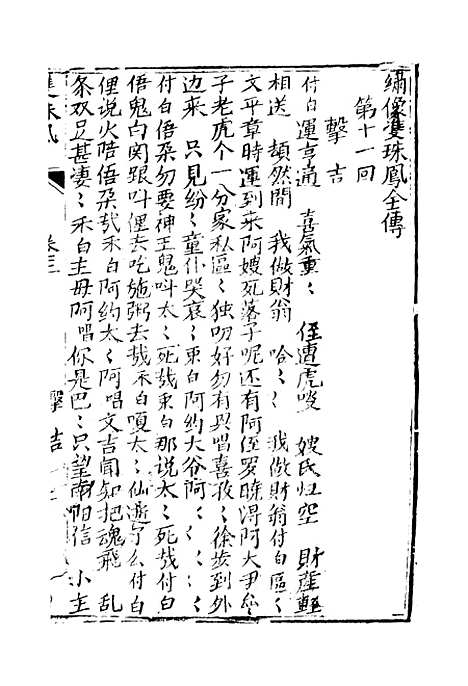 繡像雙珠鳳全傳
第十一回
擊吉
付白運亨通　喜氣重〻　侄遭虎唆　嫂氏归空　財產輕
相送　頓然間　我做財翁　哈〻〻　我做財翁付白區〻
文平章時運到来阿嫂死落子呢还有阿侄罗曉得阿大尹
子老虎个一分家私區〻独吻好勿有興唱喜孜〻徐步到外
边来　只見纷〻童仆哭哀〻东白阿约大爷阿〻〻〻〻
付白俉朶勿要神王鬼叫太〻死哉东白那说太〻死哉付白
俉鬼白関跟叶俚去吃施粥去哉禾白嗄太〻仙遊了么付白
俚说火陪俉朶哉禾白阿约太〻阿唱文吉闻知把魂飛　乱
条双足甚凄〻禾白主母阿唱你是巴〻只望南陽信　小主
雙珠鳳　卷三　擊吉